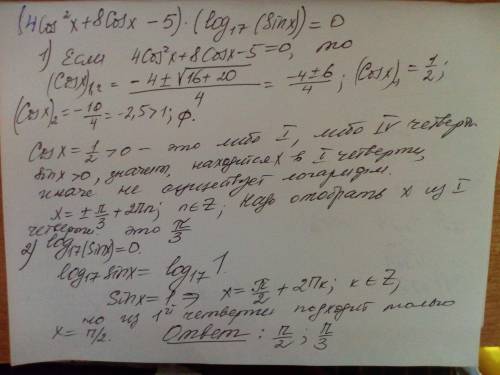 (4Cos²x+8Cosx-5)·(log₁₇(Sinx))=0
1) Если 4Cos²x+8Cosx-5=0, то
(Cosx)₁,₂ = (-4±√(16+20))/4 = (-4±6)/4; (Cosx)₁=1/2;
(Cosx)₂=-10/4=-2,5>1; ∅.
Cosx=1/2>0 - это либо I, либо IV четверть
sinx>0, значит, находится x в I четверти,
иначе не существует логарифм.
x=±π/3+2πn; n∈Z; Надо отобрать x из I
четверти это π/3
2) log₁₇(Sinx)=0.
log₁₇Sinx=log₁₇1
Sinx=1 ⇒ x=π/2+2πк; к∈Z,
но из 1ой четверти подходит только
x=π/2. Ответ: π/2; π/3